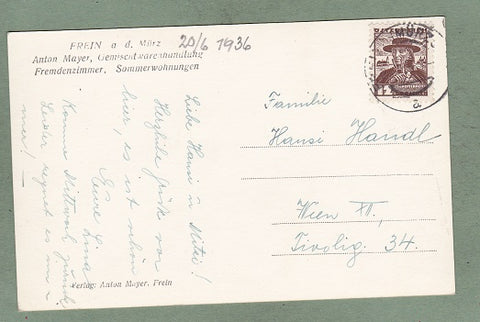 FREIN a. d. Mürz
20/6 1936
Anton Mayer, Gemischtwarenhandlung
Fremdenzimmer, Sommerwohnungen
Liebe Hansi u. Mitzi!
Herzliche Grüße von
hier, es ist schön
Eure Lina
Komme Mittwoch zurück
Leider regnet es im-
mer! -
Verlag: Anton Mayer, Frein
Familie
Hansi Handl
Wien XII,
Tivolig. 34.